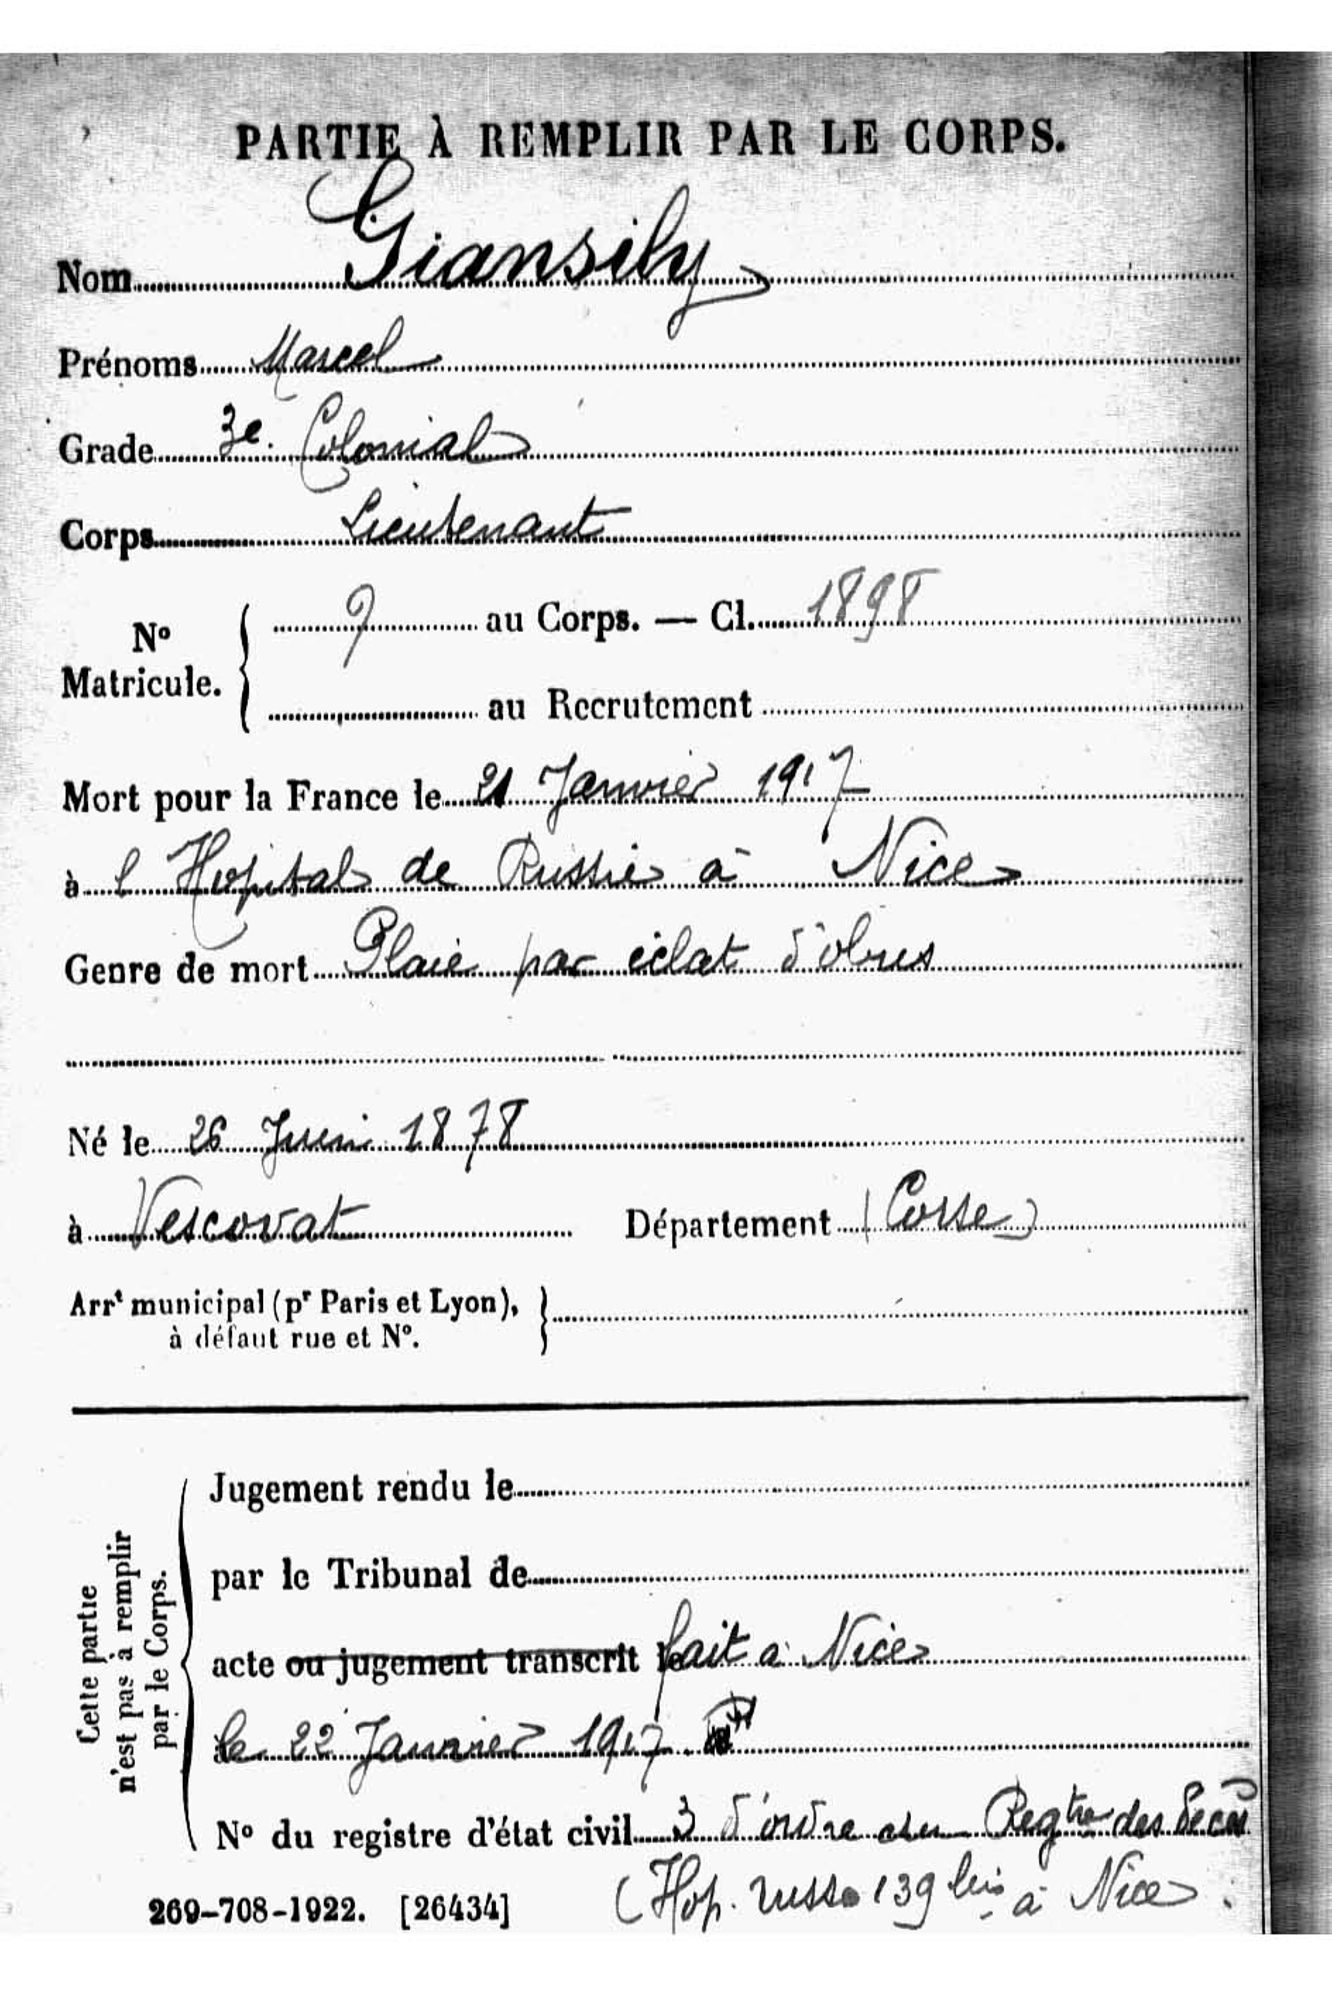 PARTIE À REMPLIR PAR LE CORPS.
Nom Giansily
Prénoms Marcel
Grade 3e Colonial
Corps Lieutenant
No Matricule. { au Corps. — Cl. 1898
au Recrutement
Mort pour la France le 21 Janvier 1917
à l Hopital de Russie à Nice
Genre de mort Plaie par éclat d'obus
Né le 26 Juin 1878
à Vescovat Département (Corse)
Arrt municipal (pr Paris et Lyon), }
à défaut rue et No.
Cette partie
n'est pas à remplir
par le Corps.
Jugement rendu le
par le Tribunal de
acte ou jugement transcrit le fait à Nice
le 22 Janvier 1917
No du registre d'état civil 3 d'ordre au Regtre des Décès
(Hop. russe 139 bis à Nice
269-708-1922. [26434]